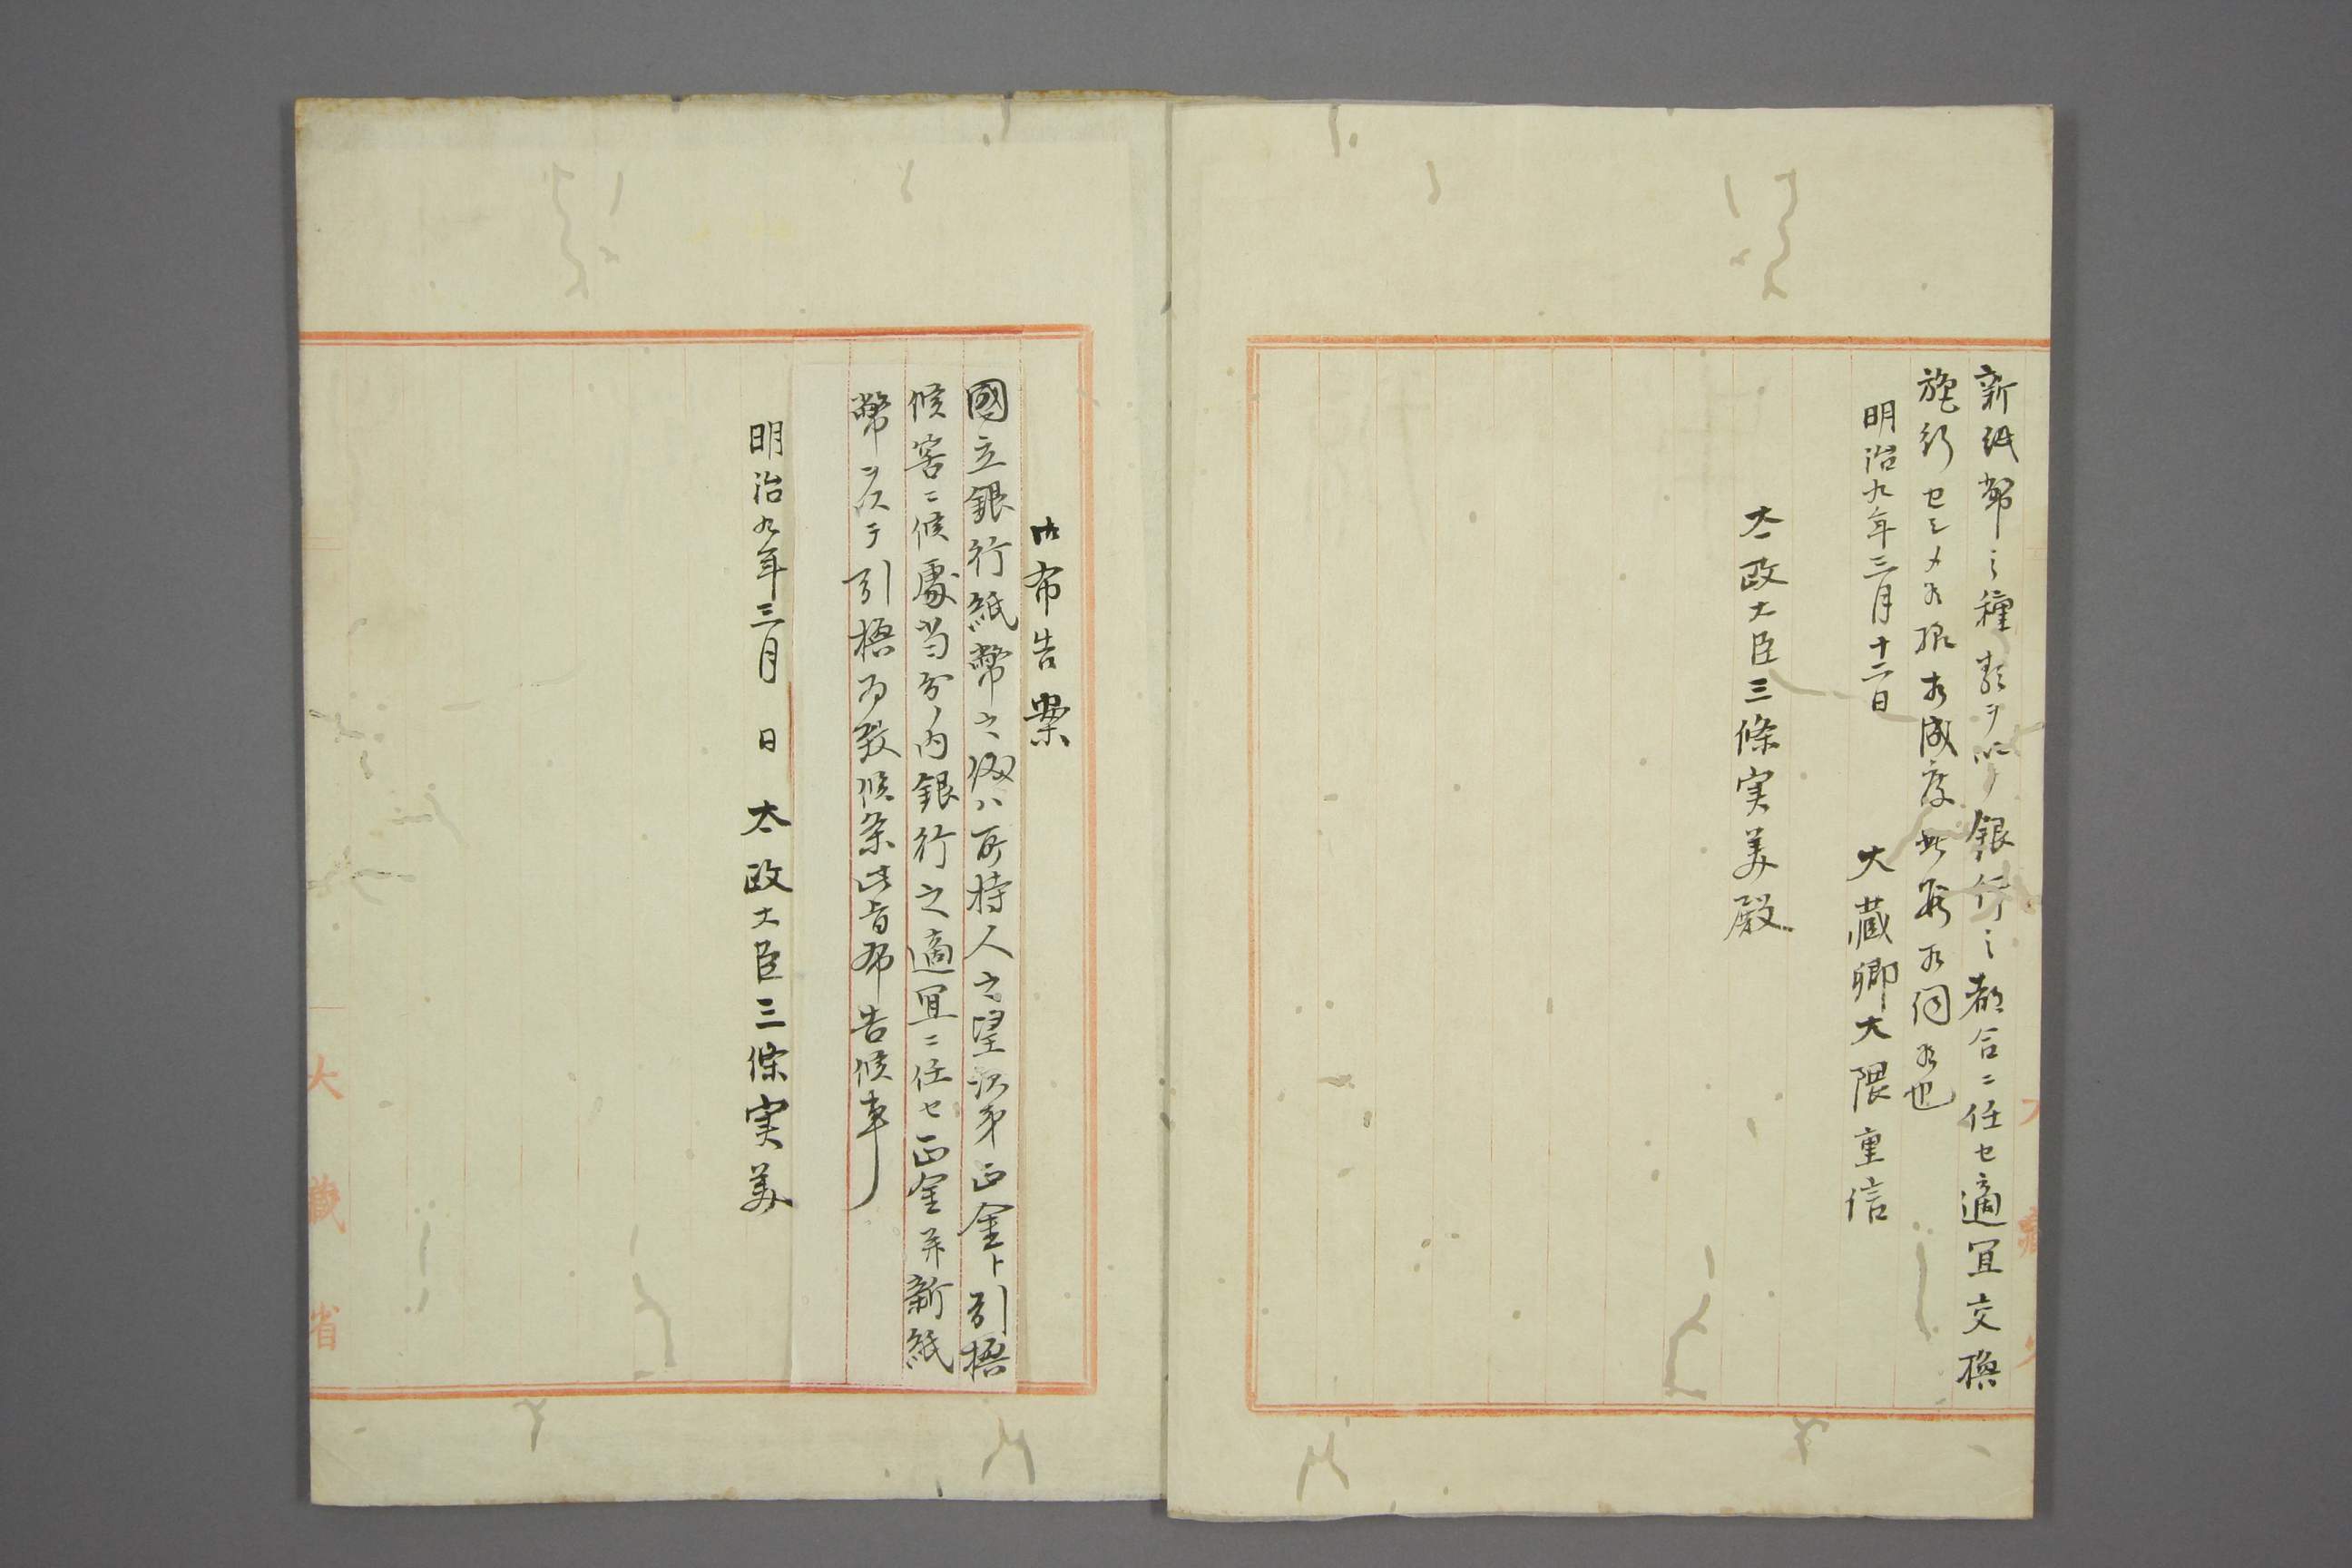 新紙幣之種類ヲ以テ銀行之都合ニ任セ適宜交換
施行セシメ候様相成度此段相伺候也
明治九年三月十二日
大蔵卿大隈重信
太政大臣三條実美殿
御布告案
國立銀行紙幣之儀ハ所持人之望次第正金ト引換
候筈ニ候處当分ノ内銀行之適宜ニ任セ正金并新紙
幣ヲ以テ引換為致候条此旨布告候事
明治九年三月 日 太政大臣三條実美
大藏省